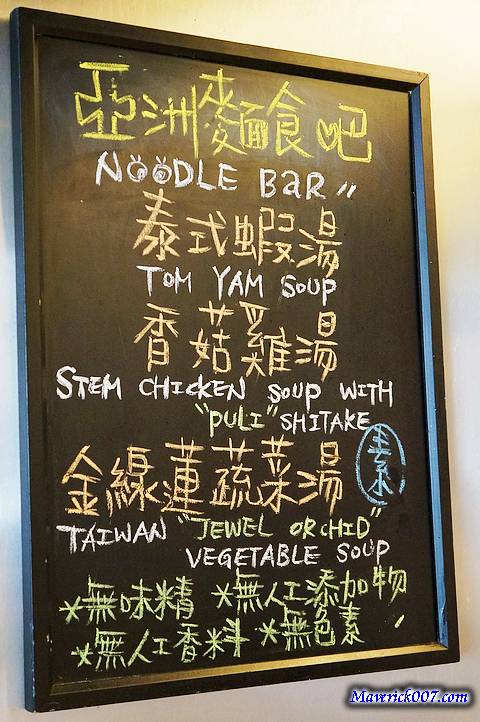 亞洲麵食吧
NOODLE BaR "
泰式蝦湯
TOM YAM SOUP
香菇雞湯
STEM CHICKEN SOUP WITH
"PULI" SHITAKE
金線蓮蔬菜湯 素
TAIWAN "JEWEL ORCHID"
VEGETABLE SOUP
*無味精 *無人工添加物
*無人工香料 *無色素
Maverick007.com